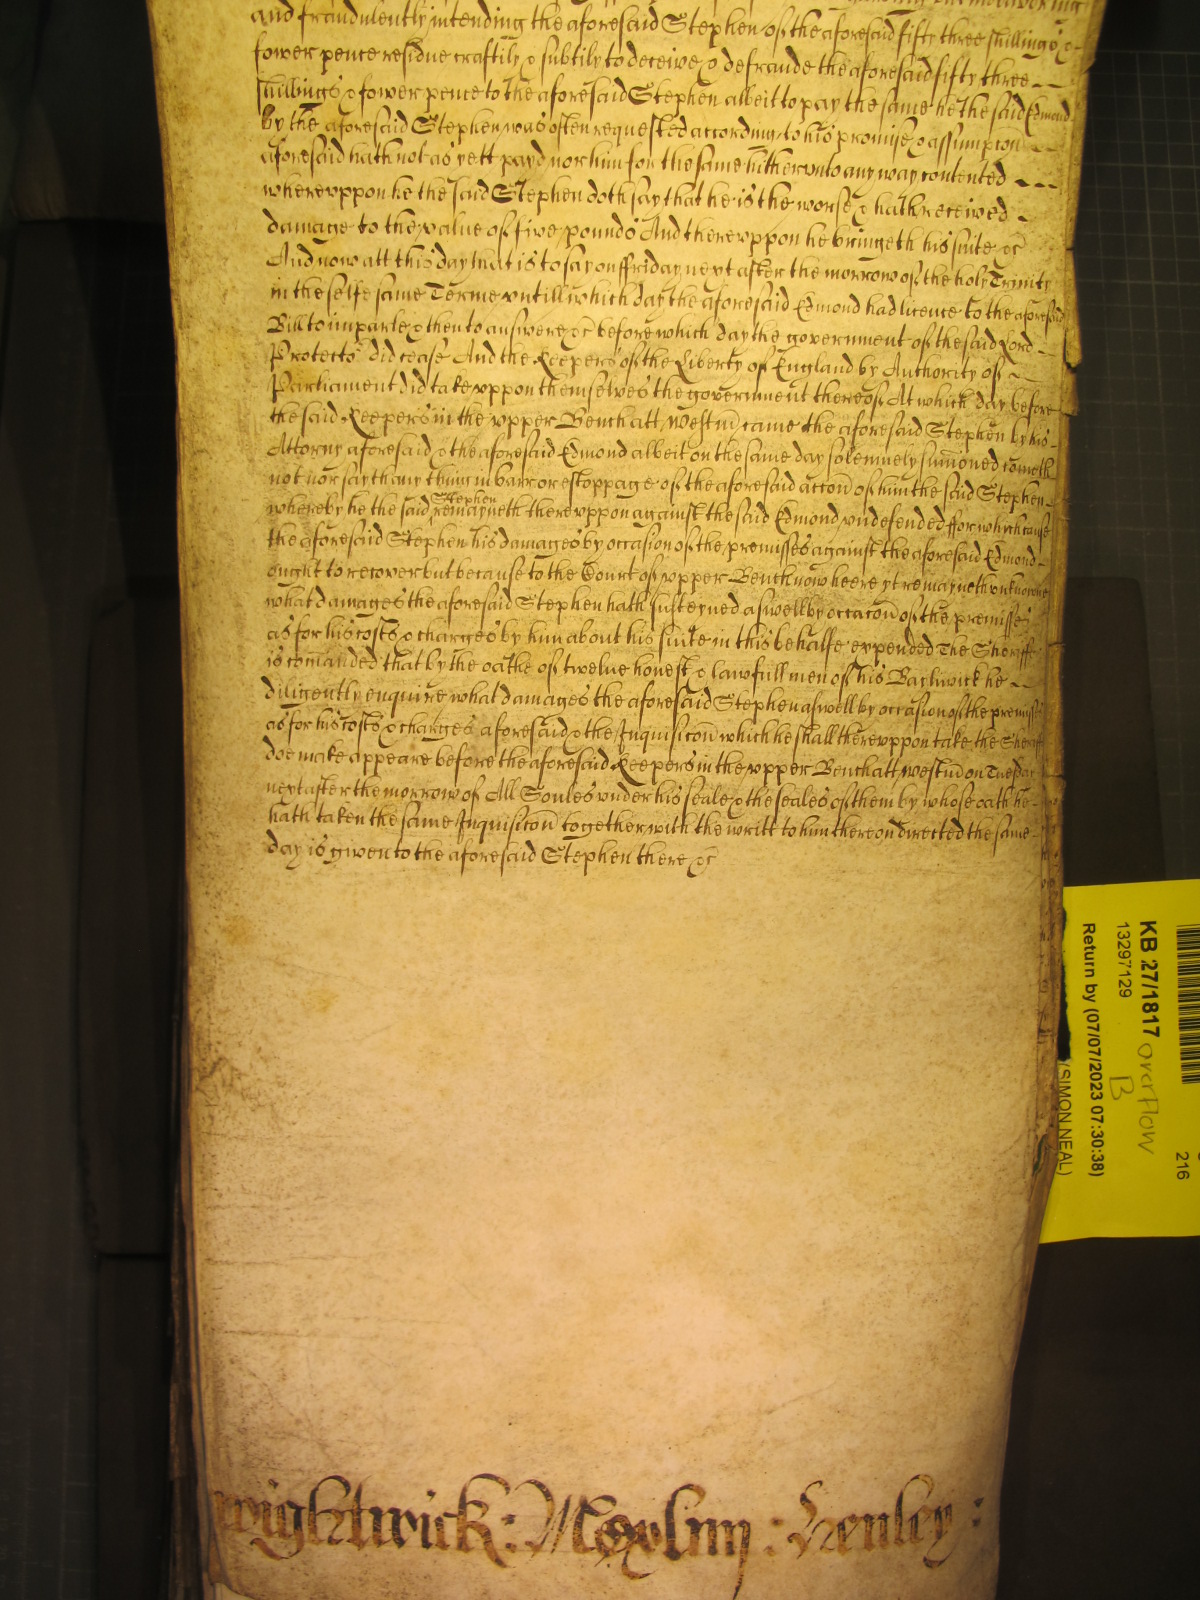 and fraudulently intending the aforesaid Stephen of the aforesaid fifty three shillings &
fower pence residue craftily & subtily to deceive & defraude the aforesaid fifty three
shillings & fower pence to the aforesaid Stephen albeit to pay the same he the said Edmond
by the aforesaid Stephen was often requested according to his promise & assumpcon
aforesaid hath not as yett payd nor him for the same hitherunto any way contented
whereuppon he the said Stephen doth say that he is the worse & hath received
damage to the value of five pounds And thereuppon he bringeth his suite &c
And now att this day that is to say on ffriday next after the morrow of the holy Trinity
in the selfe same Terme untill which day the aforesaid Edmond had licence to the aforesaid
Bill to imparle & then to answere &c before which day the government of the said Lord
Protector did cease And the Keepers of the Liberty of England by Authority of
Parliament did take uppon themselves the government thereof At which day before
the said Keepers in the upper Bench att Westm came the aforesaid Stephen by his
Attorny aforesaid & the aforesaid Edmond albeit on the same day solemnely sumoned cometh
not nor sayth any thing in barr or estoppage of the aforesaid accon of him the said Stephen
whereby he the said Stephen remayneth thereuppon against the said Edmond undefended ffor which cause
the aforesaid Stephen his damages by occasion of the premisses against the aforesaid Edmond
ought to recover but because to the Court of upper Bench now heere yt remayneth unknowne
what damages the aforesaid Stephen hath susteyned aswell by occacon of the premisses
as for his costs & charges by him about his suite in this behalfe expended The Sheriffe
is comanded that by the oathe of twelve honest & lawfull men of his Bayliwick he
diligently enquire what damages the aforesaid Stephen aswell by occasion of the premisses
as for his costs & charges aforesaid & the Inquisicon which he shall thereuppon take the Sheriffe
doe make appeare before the aforesaid Keepers in the upper Bench att Westm on Tuesday
next after the morrow of All Soules under his seale & the seales of them by whose oath he
hath taken the same Inquisicon together with the writt to him thereon directed the same
day is given to the aforesaid Stephen there &c
Wightwick : Moxlay : Henley :
KB 27/1817 overflow B
13297129
Return by (07/07/2023 07:30:38)
(SIMON NEAL)
216